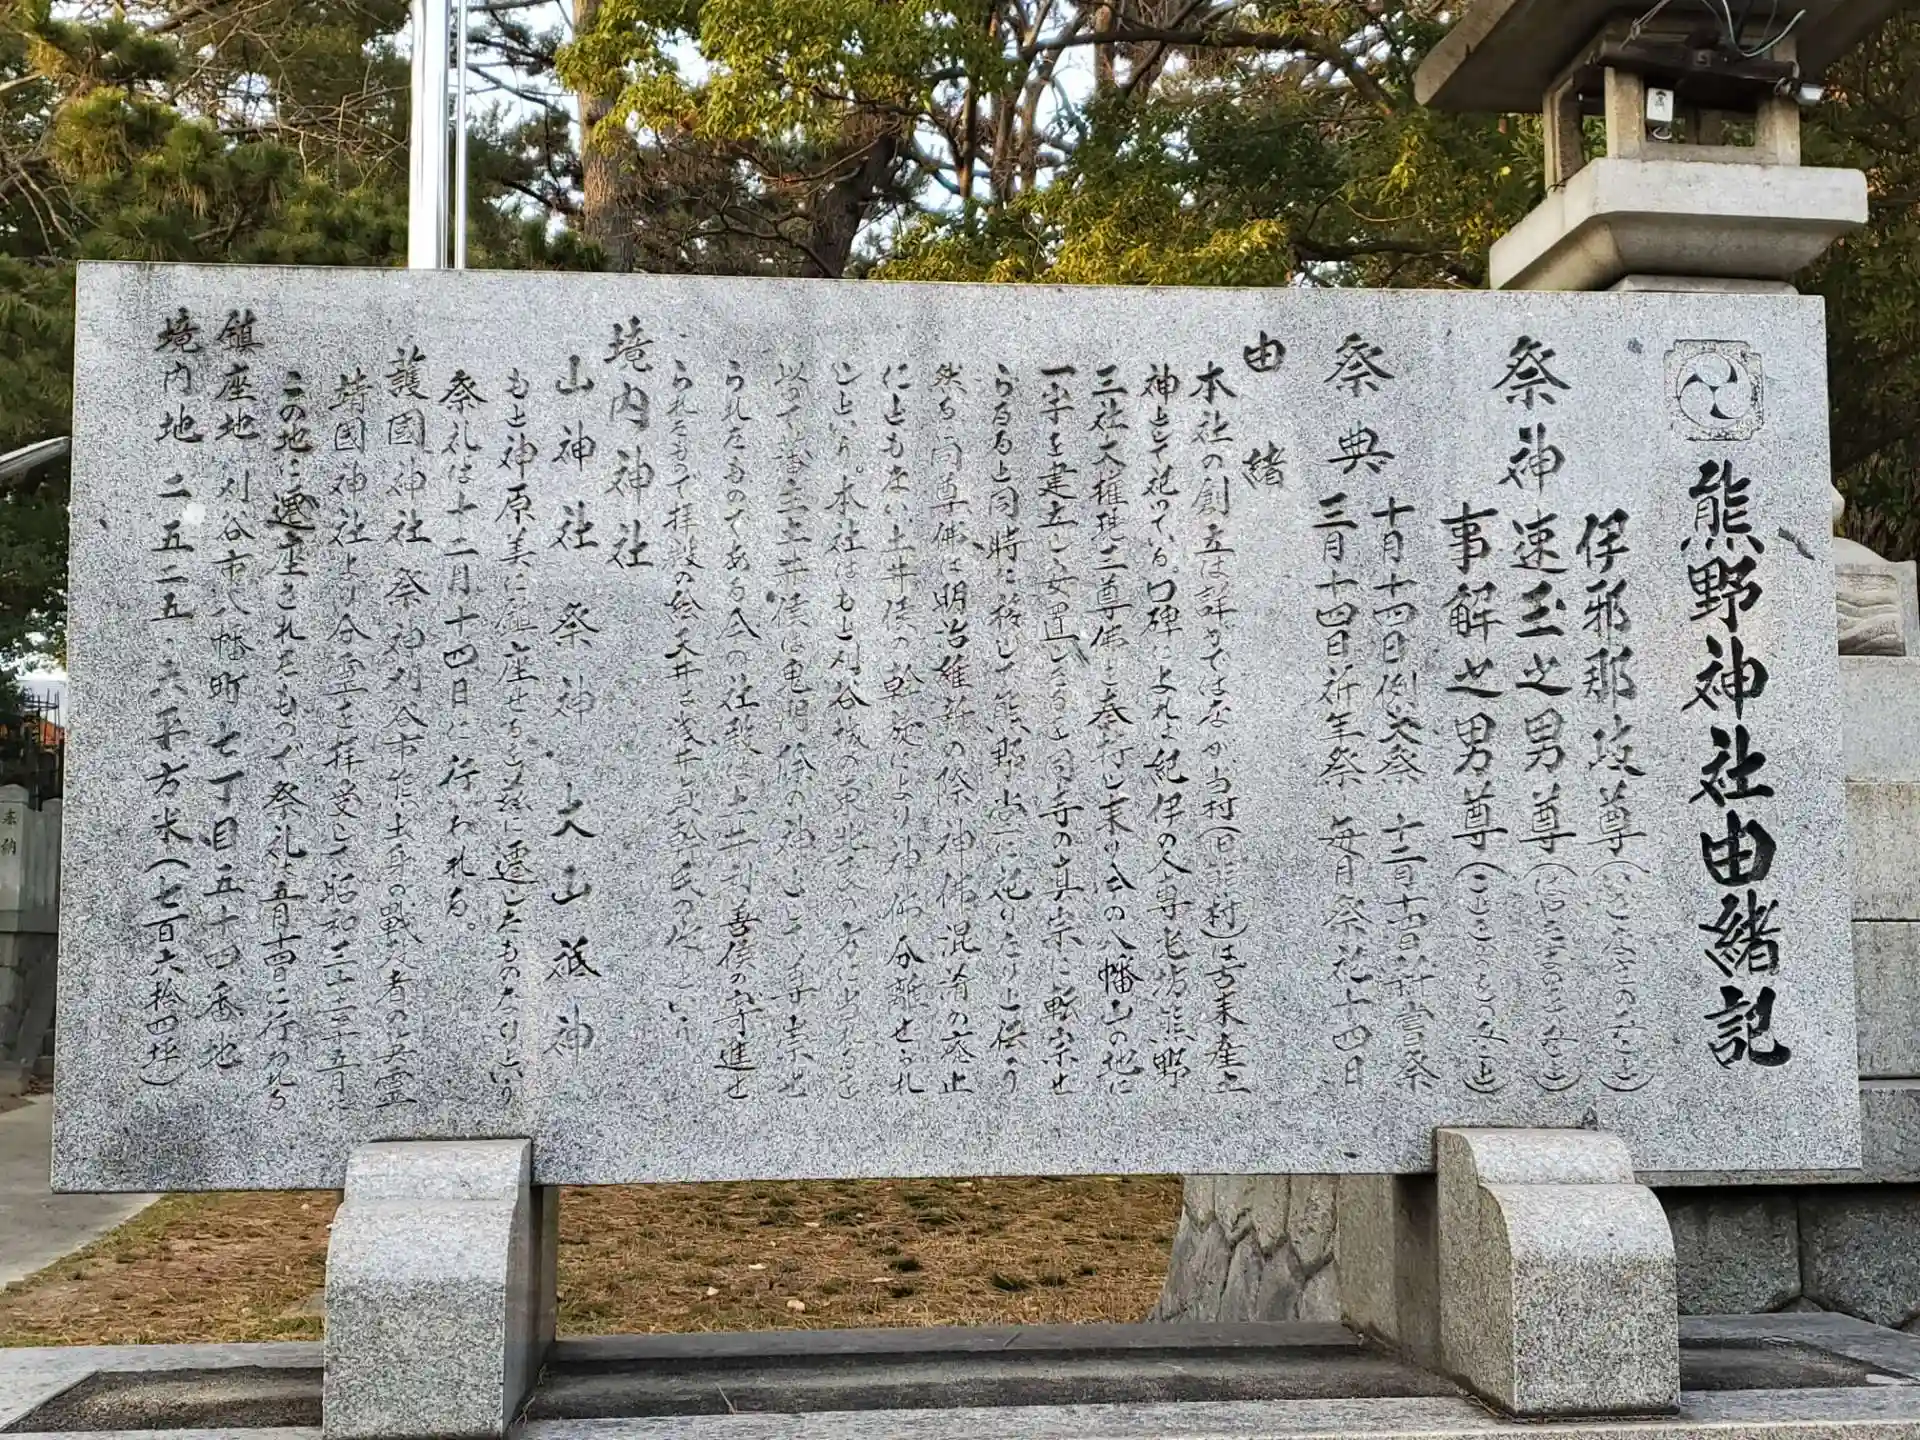 熊野神社由緒記
祭神 伊邪那岐尊
速玉之男尊
事解之男尊
祭典 十月十四日例大祭
三月十四日祈年祭 毎月祭礼十四日
由緒
本社の創立は詳かではないが当村(旧熊村)は古来産土
神として祀っている。口碑によれば紀伊の人専光坊熊野
三社大権現三尊佛を奉持し来り今の八幡山の地に
一宇を建立し安置したるを同寺の真宗に転宗せ
らるると同時に移して熊野堂に祀りたりと伝う
然る に同尊佛は明治維新の際神佛混淆の廃止
にともない土井侯の斡旋により神佛分離せられ
しという。本社はもと刈谷城の東北 の方に当たるを
以って藩主土井侯は鬼門除の神として尊崇せ
られたものである今の社殿は土井利善侯の寄進せ
られたもので拝殿の絵天井は浅井 氏の作という。
境内神社
山神社 祭神 大山祇神
もと神原美に鎮座せるを茲に遷したものなりという
祭礼は十二月十四日に行われる。
護國神社 祭神刈谷市 出身の戦没者の英霊
靖国神社より分霊を拝受して昭和三十三年五月に
この地に遷座されたもので祭礼は五月 日に行われる
鎮座地 刈谷市八幡町七丁目五十四番地
境内地 二五二五・六平方米(七百六拾四坪)
奉納